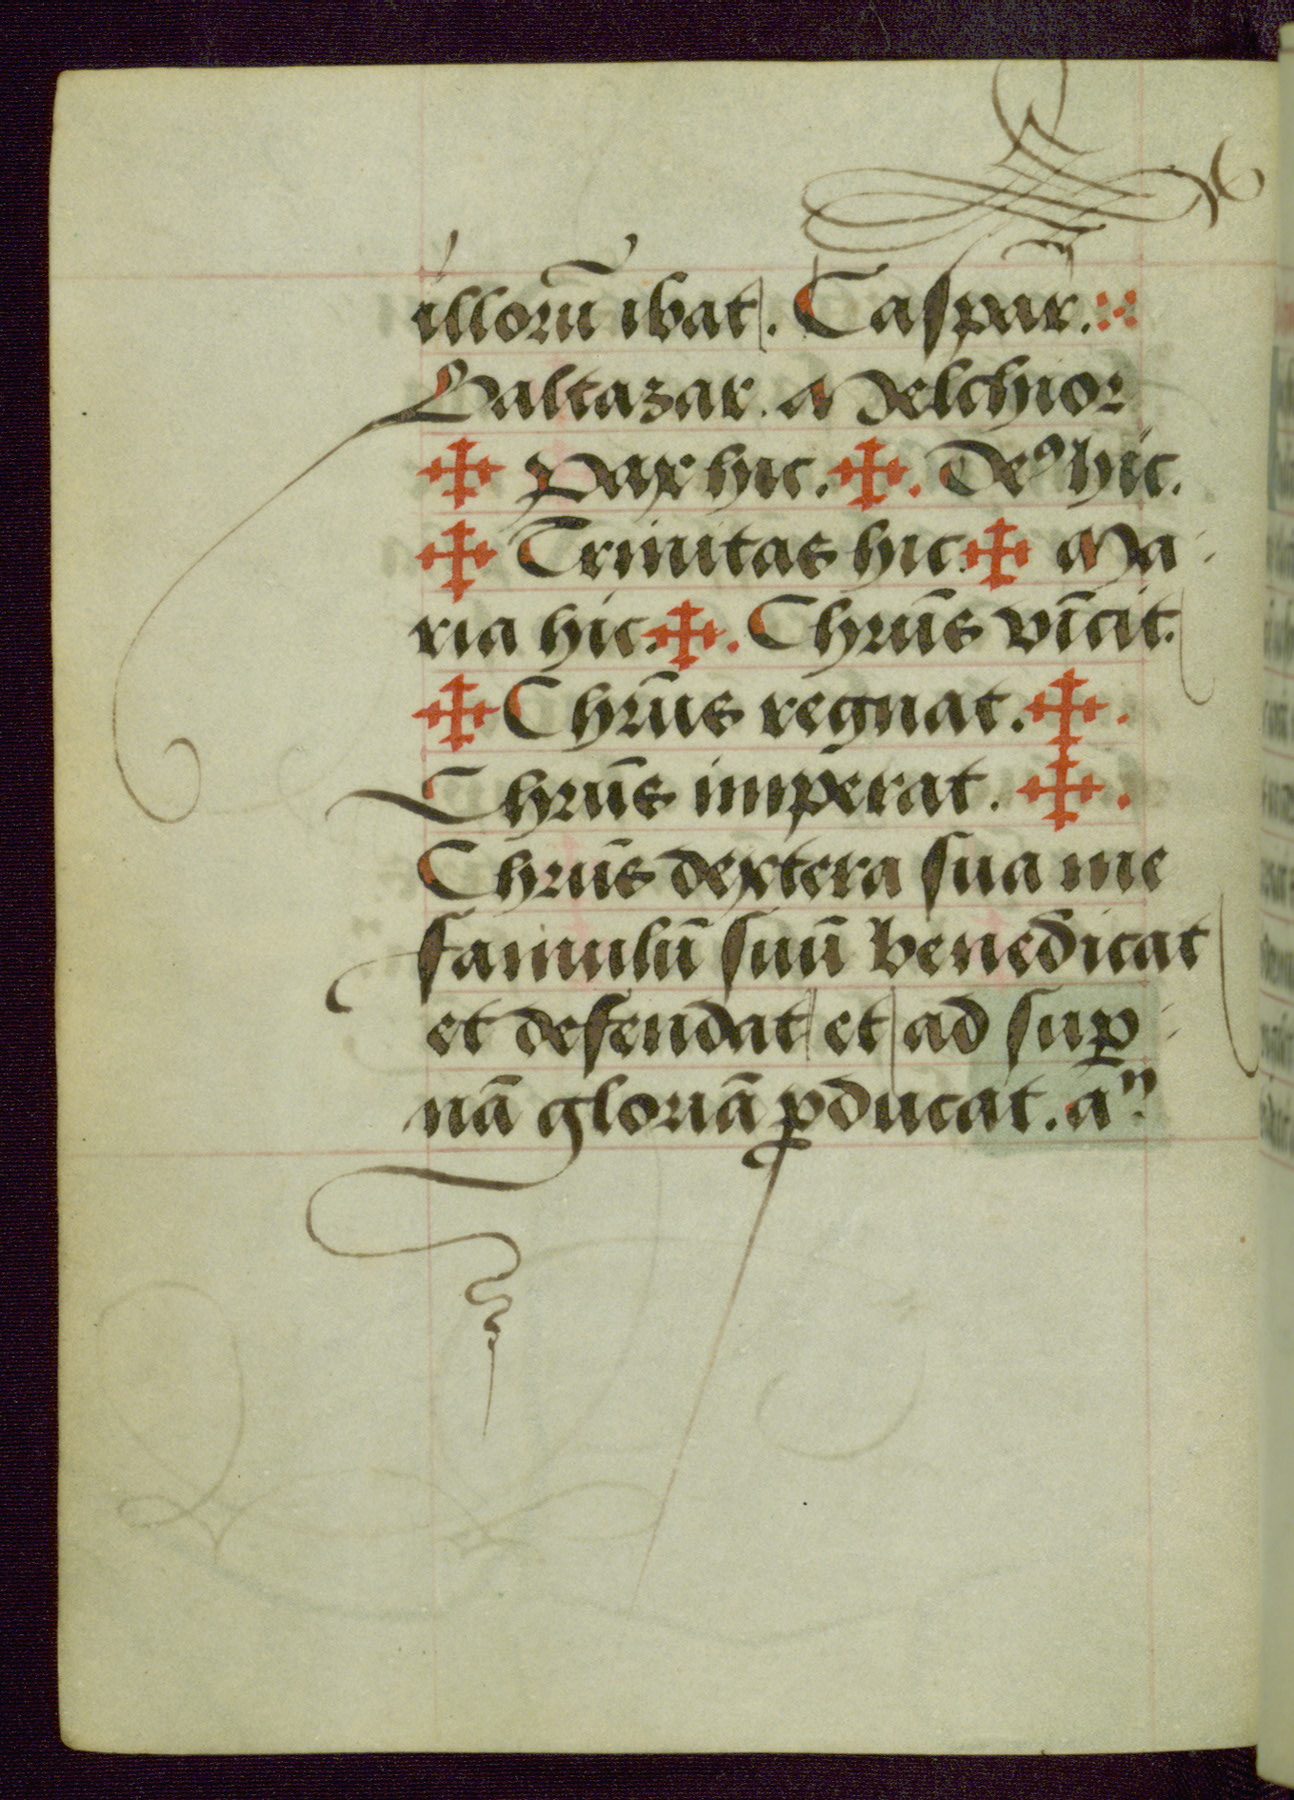 illorū ibat. Caspar.
Baltazar. Melchior
✠ Pax hic. ✠. Deꝰ hic.
✠ Trinitas hic ✠ Ma
ria hic. ✠. Chrūs vīcit.
✠ Chrūs regnat. ✠.
Chrūs imperat. ✠.
Chrūs dextera sua me
famulū suū benedicat
et defendat et ad sup
nā gloriā ꝓducat. a̅